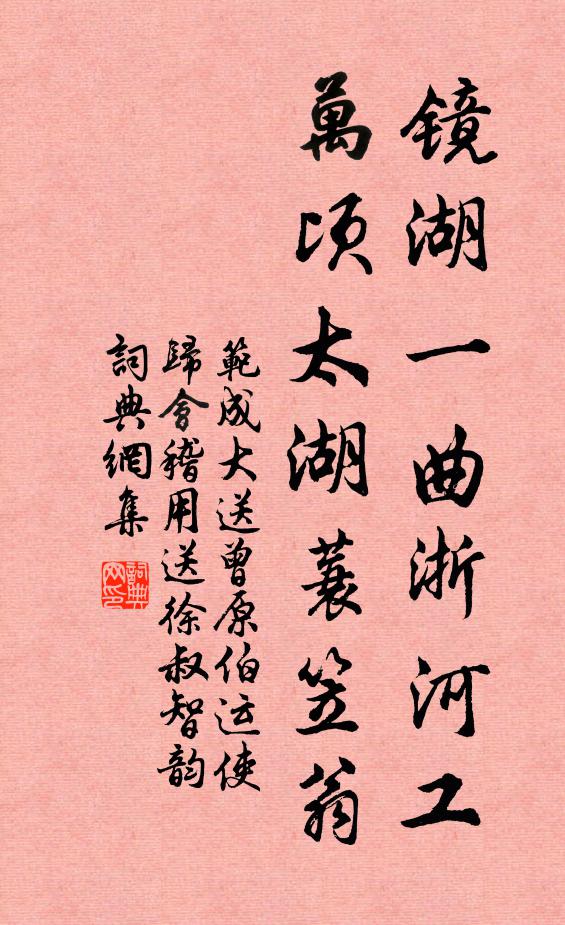 镜湖一曲浙河工
萬頃太湖蓑笠翁
範成大送曾原伯运使
歸會稽用送徐叔智韵
詞典網集
詞典网印